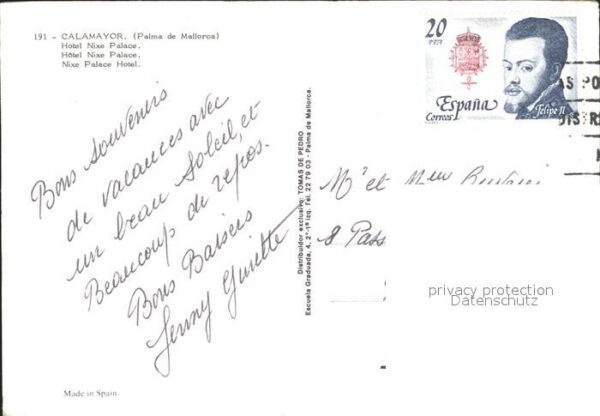 191 - CALAMAYOR. (Palma de Mallorca)
Hotel Nixe Palace.
Hôtel Nixe Palace.
Nixe Palace Hotel.
20
PTA
España
Correos
Felipe II
AS PO
DISTRI
Bons souvenirs
de vacances avec
un beau soleil, et
Beaucoup de repos.
Bons Baisers
Distribuidor exclusivo: TOMAS DE PEDRO
Escuela Graduada, 4, 2°-1ª Izq. Tel. 22 79 03 - Palma de Mallorca.
Mr et Mme
8 Pass
privacy protection
Datenschutz
Made in Spain.